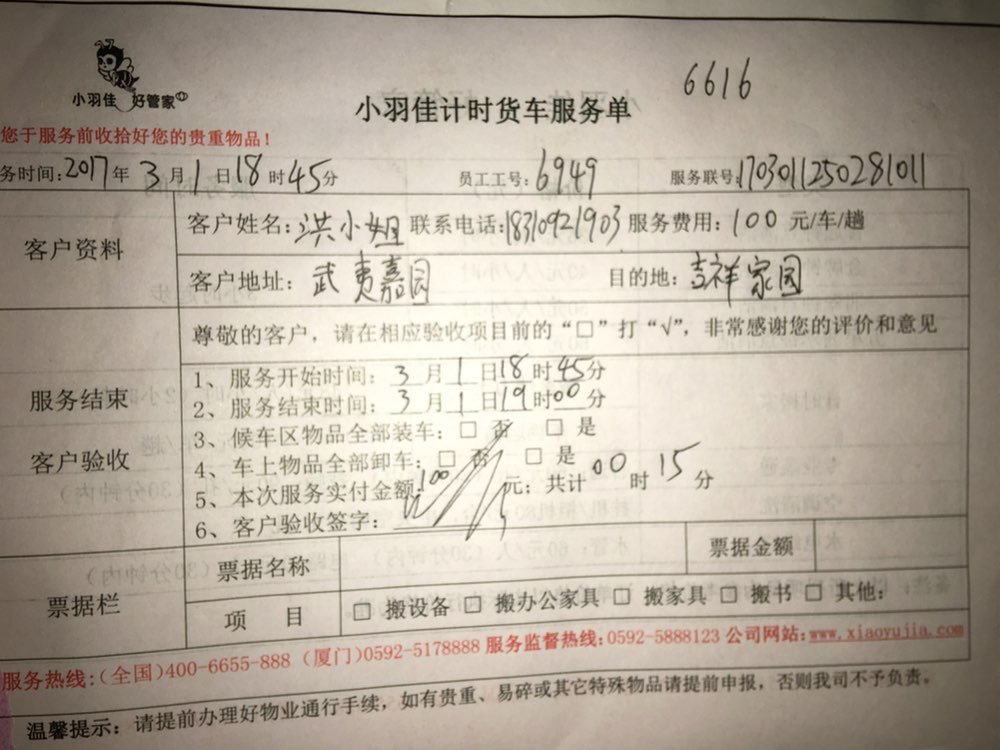 小羽佳 好管家
6616
小羽佳计时货车服务单
您于服务前收拾好您的贵重物品！
务时间:2017年3月1日18时45分 员工工号:6949 服务联号:1703011250281011
客户资料
客户姓名:洪小姐 联系电话:18310921903 服务费用:100元/车/趟
客户地址:武夷嘉园 目的地:吉祥家园
服务结束
客户验收
尊敬的客户，请在相应验收项目前的“□”打“√”，非常感谢您的评价和意见
1、服务开始时间:3月1日18时45分
2、服务结束时间:3月1日19时00分
3、候车区物品全部装车:□ 否 □ 是
4、车上物品全部卸车:□ 否 □ 是
5、本次服务实付金额:100元;共计00时15分
6、客户验收签字:
票据栏
票据名称 票据金额
项 目 □ 搬设备 □ 搬办公家具 □ 搬家具 □ 搬书 □ 其他:
服务热线:(全国)400-6655-888 (厦门)0592-5178888 服务监督热线:0592-5888123 公司网站:www.xiaoyujia.com
温馨提示：请提前办理好物业通行手续，如有贵重、易碎或其它特殊物品请提前申报，否则我司不予负责。